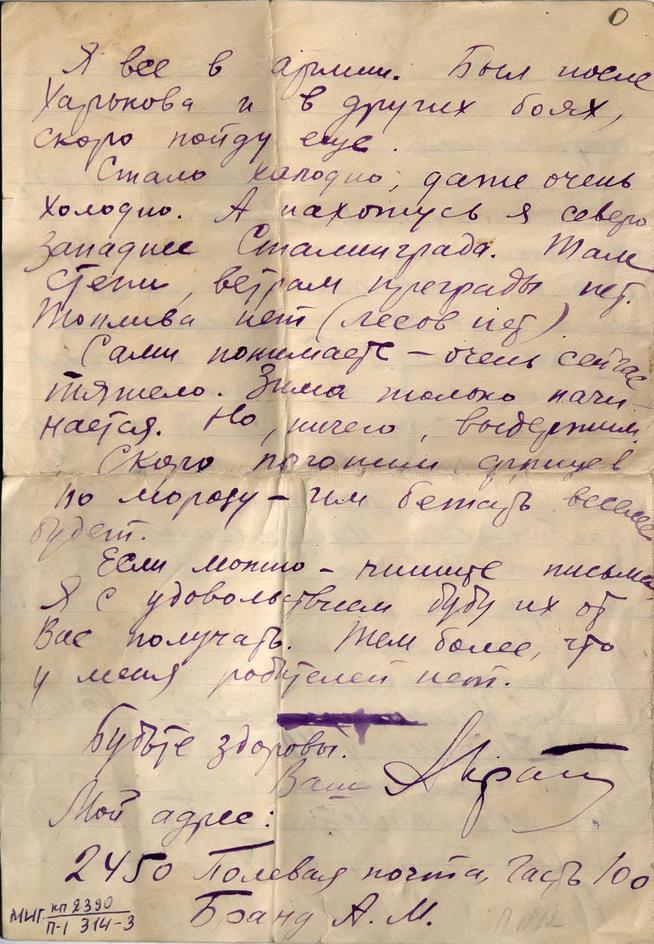 Я все в армии. Был после
Харькова и в других боях,
скоро пойду еще.
Стало холодно, даже очень
холодно. А нахожусь я северо
западнее Сталинграда. Там
степи, ветрам преграды нет.
Топлива нет (лесов нет)
Сами понимаете – очень сейчас
тяжело. Зима только начи-
нается. Но, ничего, выдержим.
Скоро погоним фрицев
по морозу – им бежать веселее
будет.
Если можно – пишите письма.
Я с удовольствием буду их от
Вас получать. Тем более, что
у меня родителей нет.
Будьте здоровы.
Ваш
Мой адрес:
2450 Полевая почта, часть 100
Бранд А. М.
МИГ КП 2390
П-1 314-3